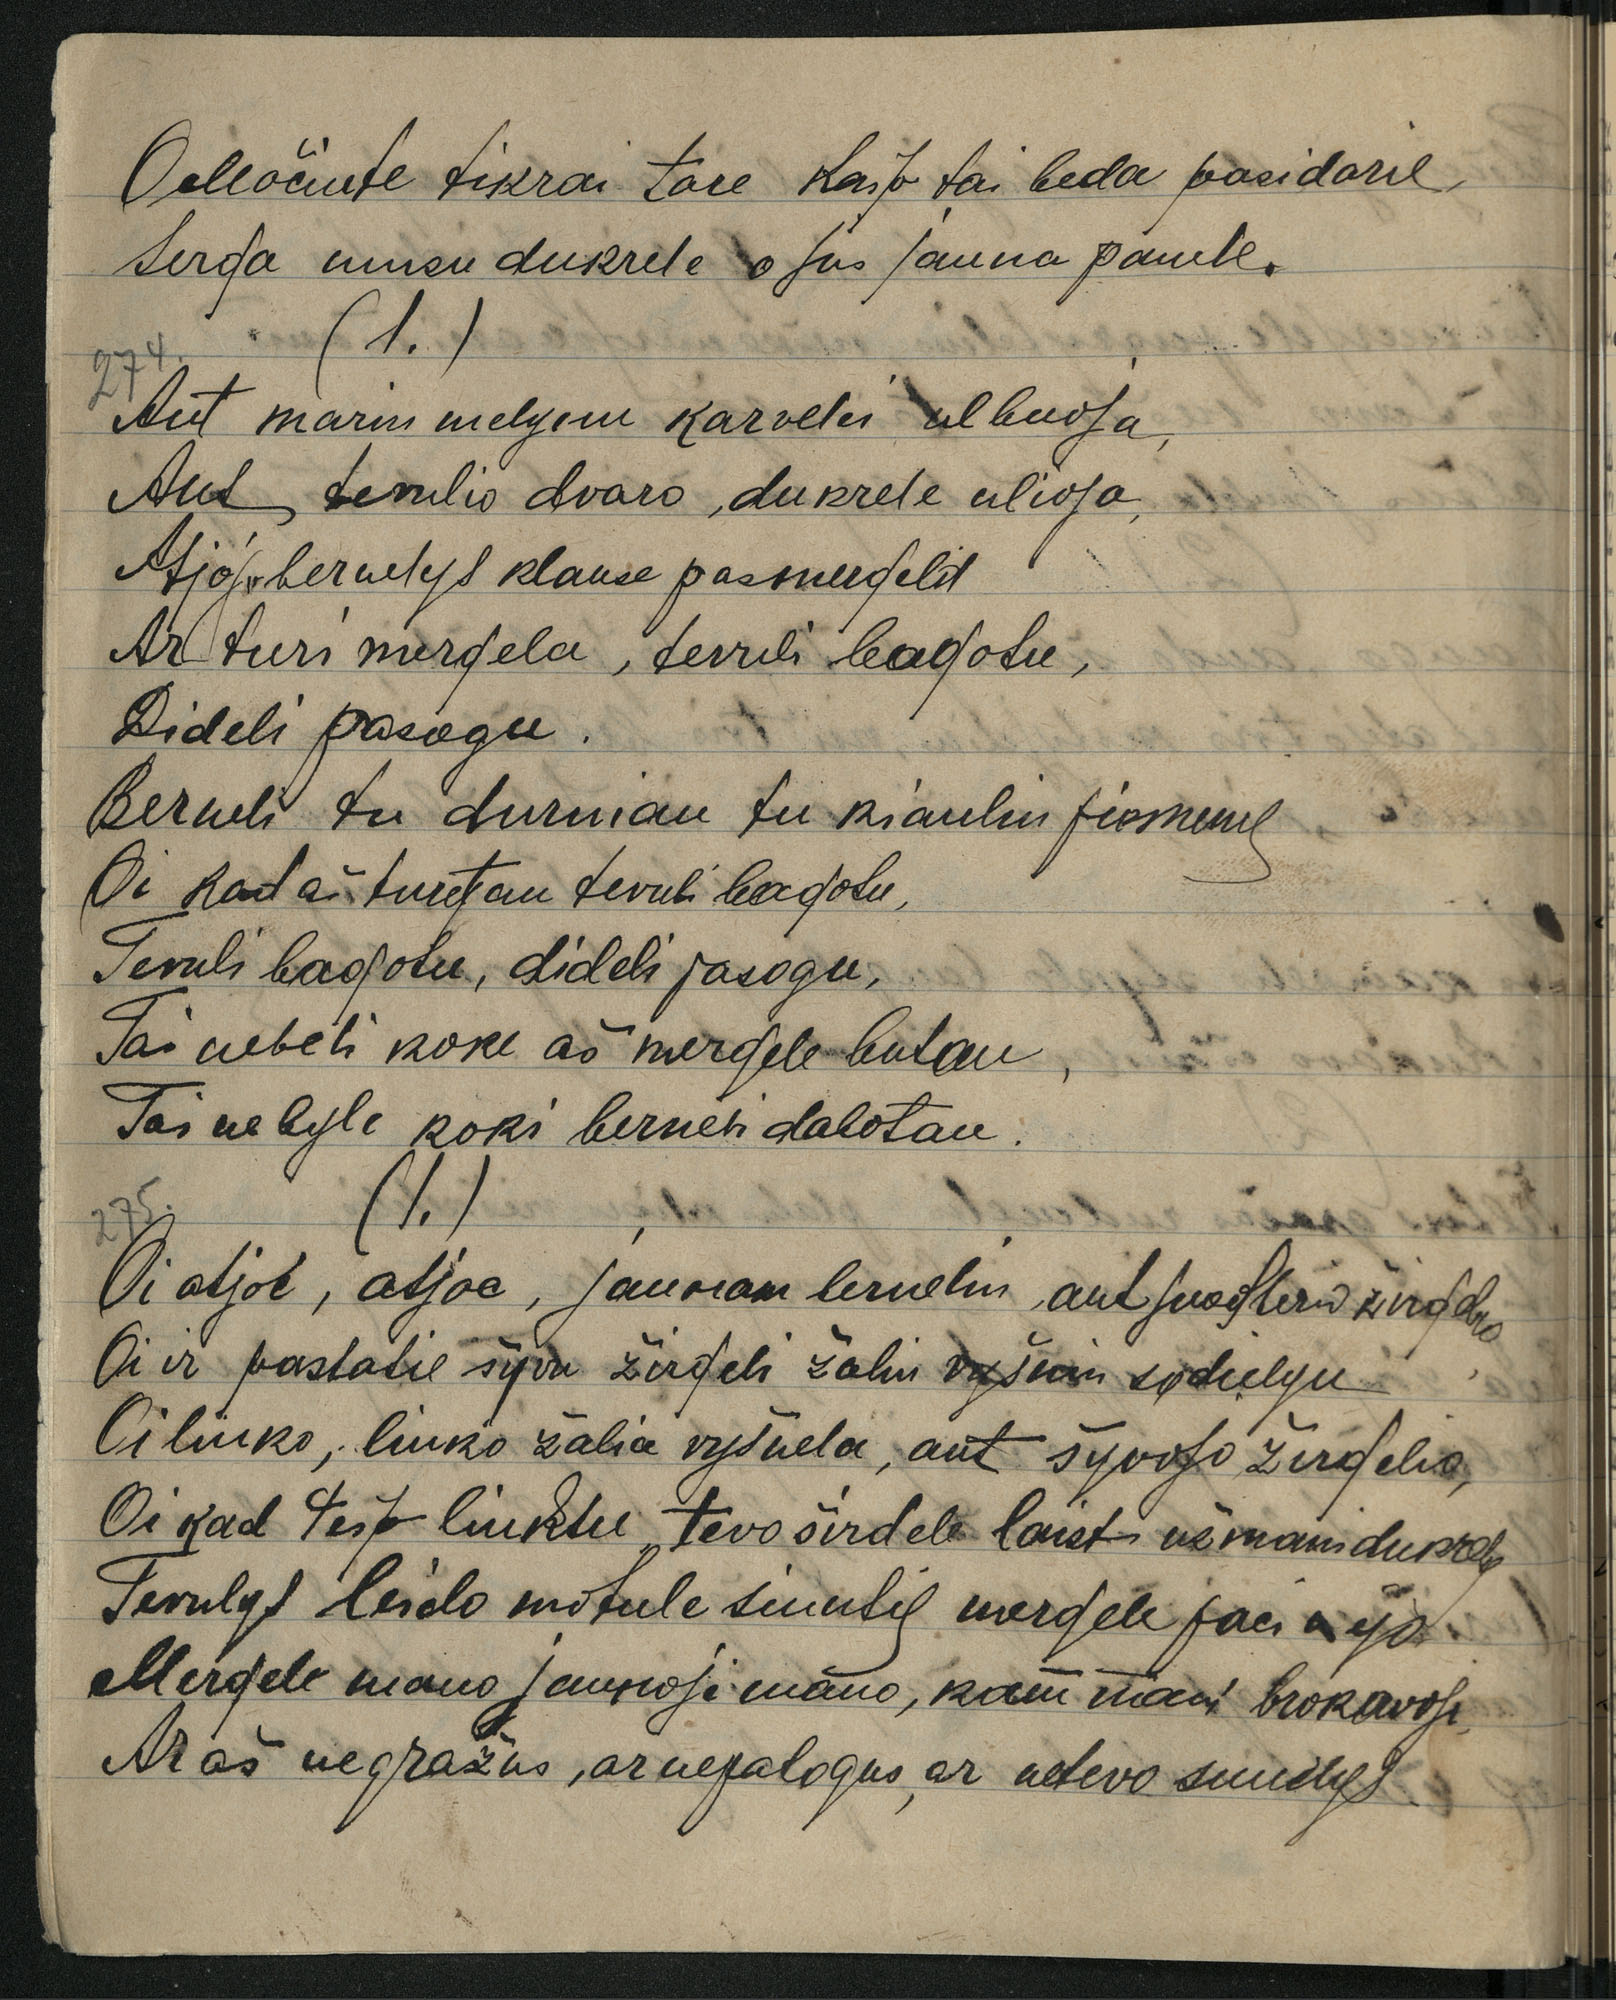 O Močiute tikrai tare Kaip tai beda pasidarie,
Serga musu dukrele o jus jauna panele.
(1.)
274.
Ant mariu melynu karvelei ulbuoja,
Ant tevulio dvaro, dukrele ulioja,
Atjoja bernelys klause pas mergelit
Ar turi mergela, tevuli bagotu,
Dideli pasogu.
Berneli tu durniau tu kiauliu piemenie
Oi kad aš turetau tevuli bagotu,
Tevuli bagotu, dideli pasogu,
Tai nebeti koke aš mergele butau,
Tai nebyle koki berneli dabotau.
(1.)
275.
Oi atjoe, atjoe, jaunam berneliu ant juodberio žirgelio
Oi ir pastatie šyvu žirgeli žaliu vyšniu sodielyu
Oi linko, linko žalia vyšnela, ant šyvojo žirgelio,
Oi kad teip linktu tevo širdele laisti už mani dukrely
Tevulys leido motule siuntie mergele pati ejo
Mergele mano jaunoji mano, kam mani brokavoji,
Ar aš negražus, ar nepatogus, ar netevo sunelys